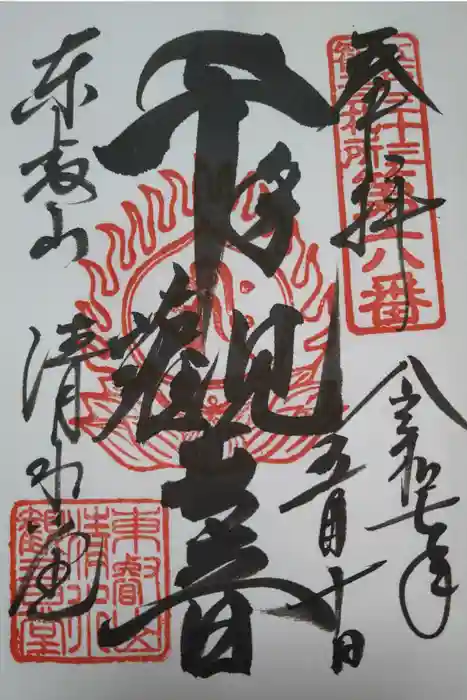 奉拝
令和七年
五月十日
千手観世音
東叡山
清水堂
第六番
東叡山
清水
観音堂